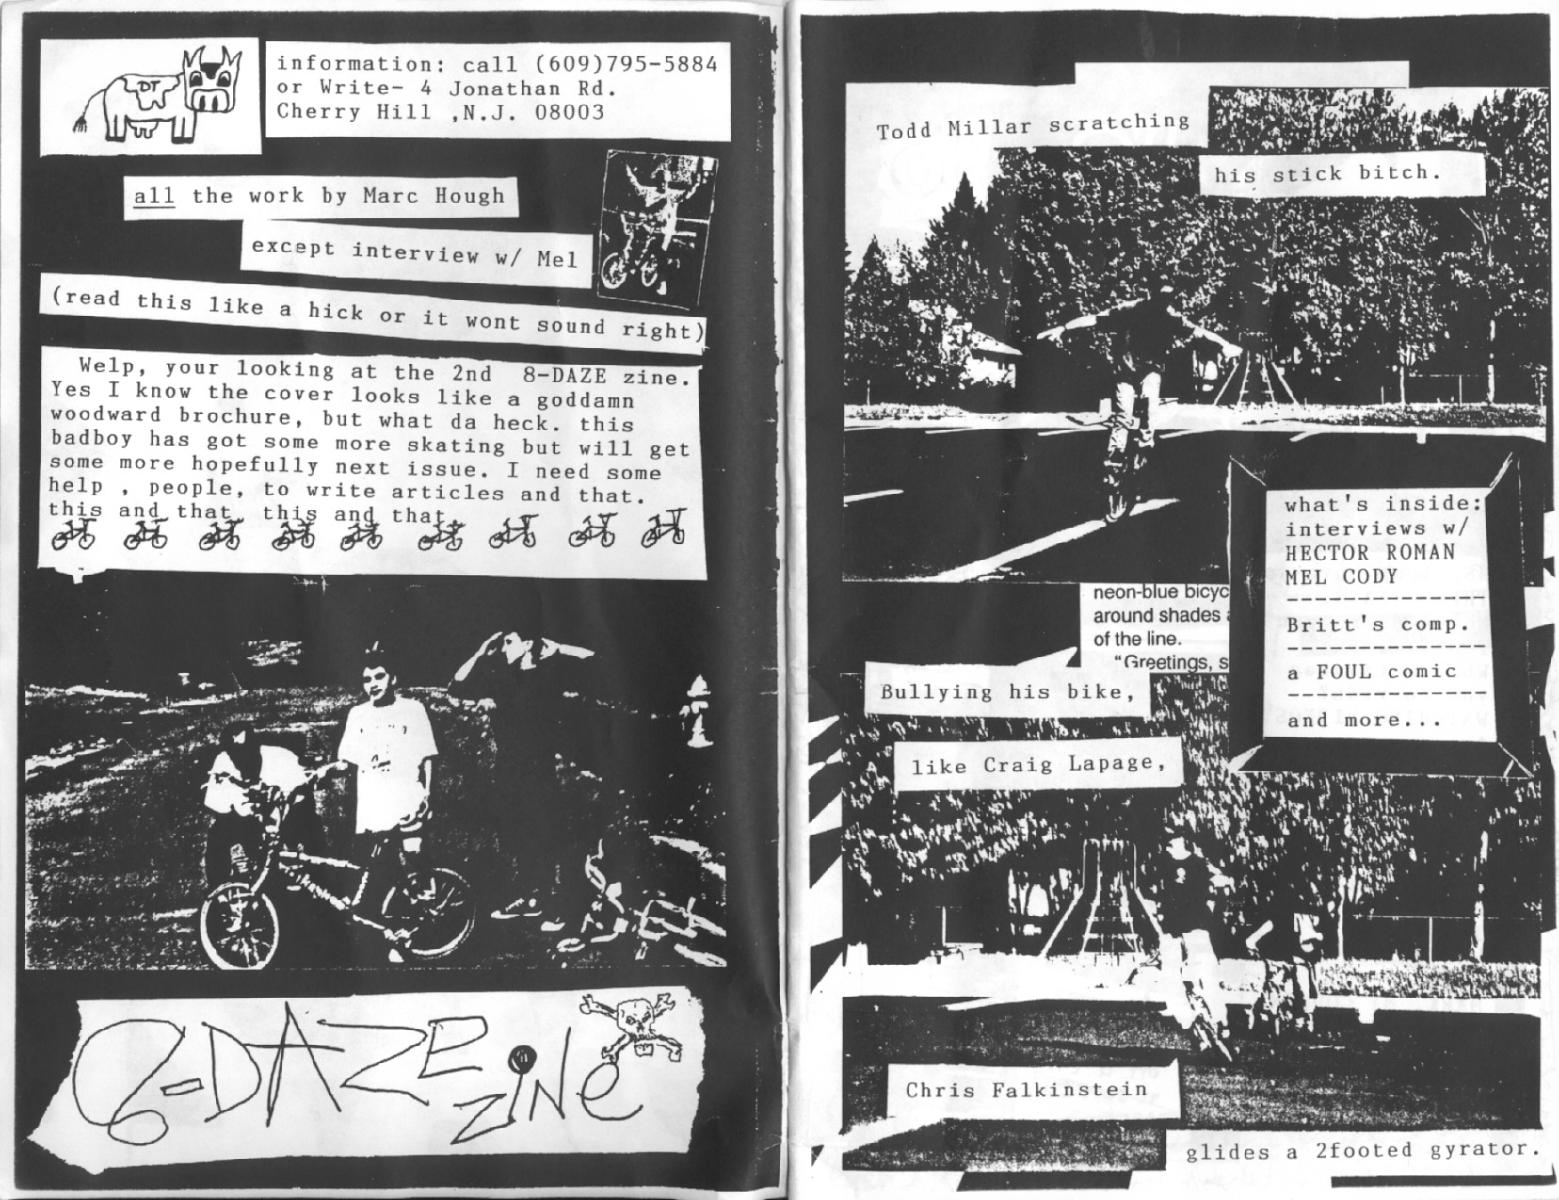 DT
information: call (609)795-5884
or Write- 4 Jonathan Rd.
Cherry Hill ,N.J. 08003
all the work by Marc Hough
except interview w/ Mel
(read this like a hick or it wont sound right)
Welp, your looking at the 2nd 8-DAZE zine.
Yes I know the cover looks like a goddamn
woodward brochure, but what da heck. this
badboy has got some more skating but will get
some more hopefully next issue. I need some
help , people, to write articles and that.
this and that, this and that
8-DAZE
ZiNe
Todd Millar scratching
his stick bitch.
what's inside:
interviews w/
HECTOR ROMAN
MEL CODY
--------------
Britt's comp.
--------------
a FOUL comic
--------------
and more...
neon-blue bicyc
around shades
of the line.
"Greetings, s
Bullying his bike,
like Craig Lapage,
Chris Falkinstein
glides a 2footed gyrator.